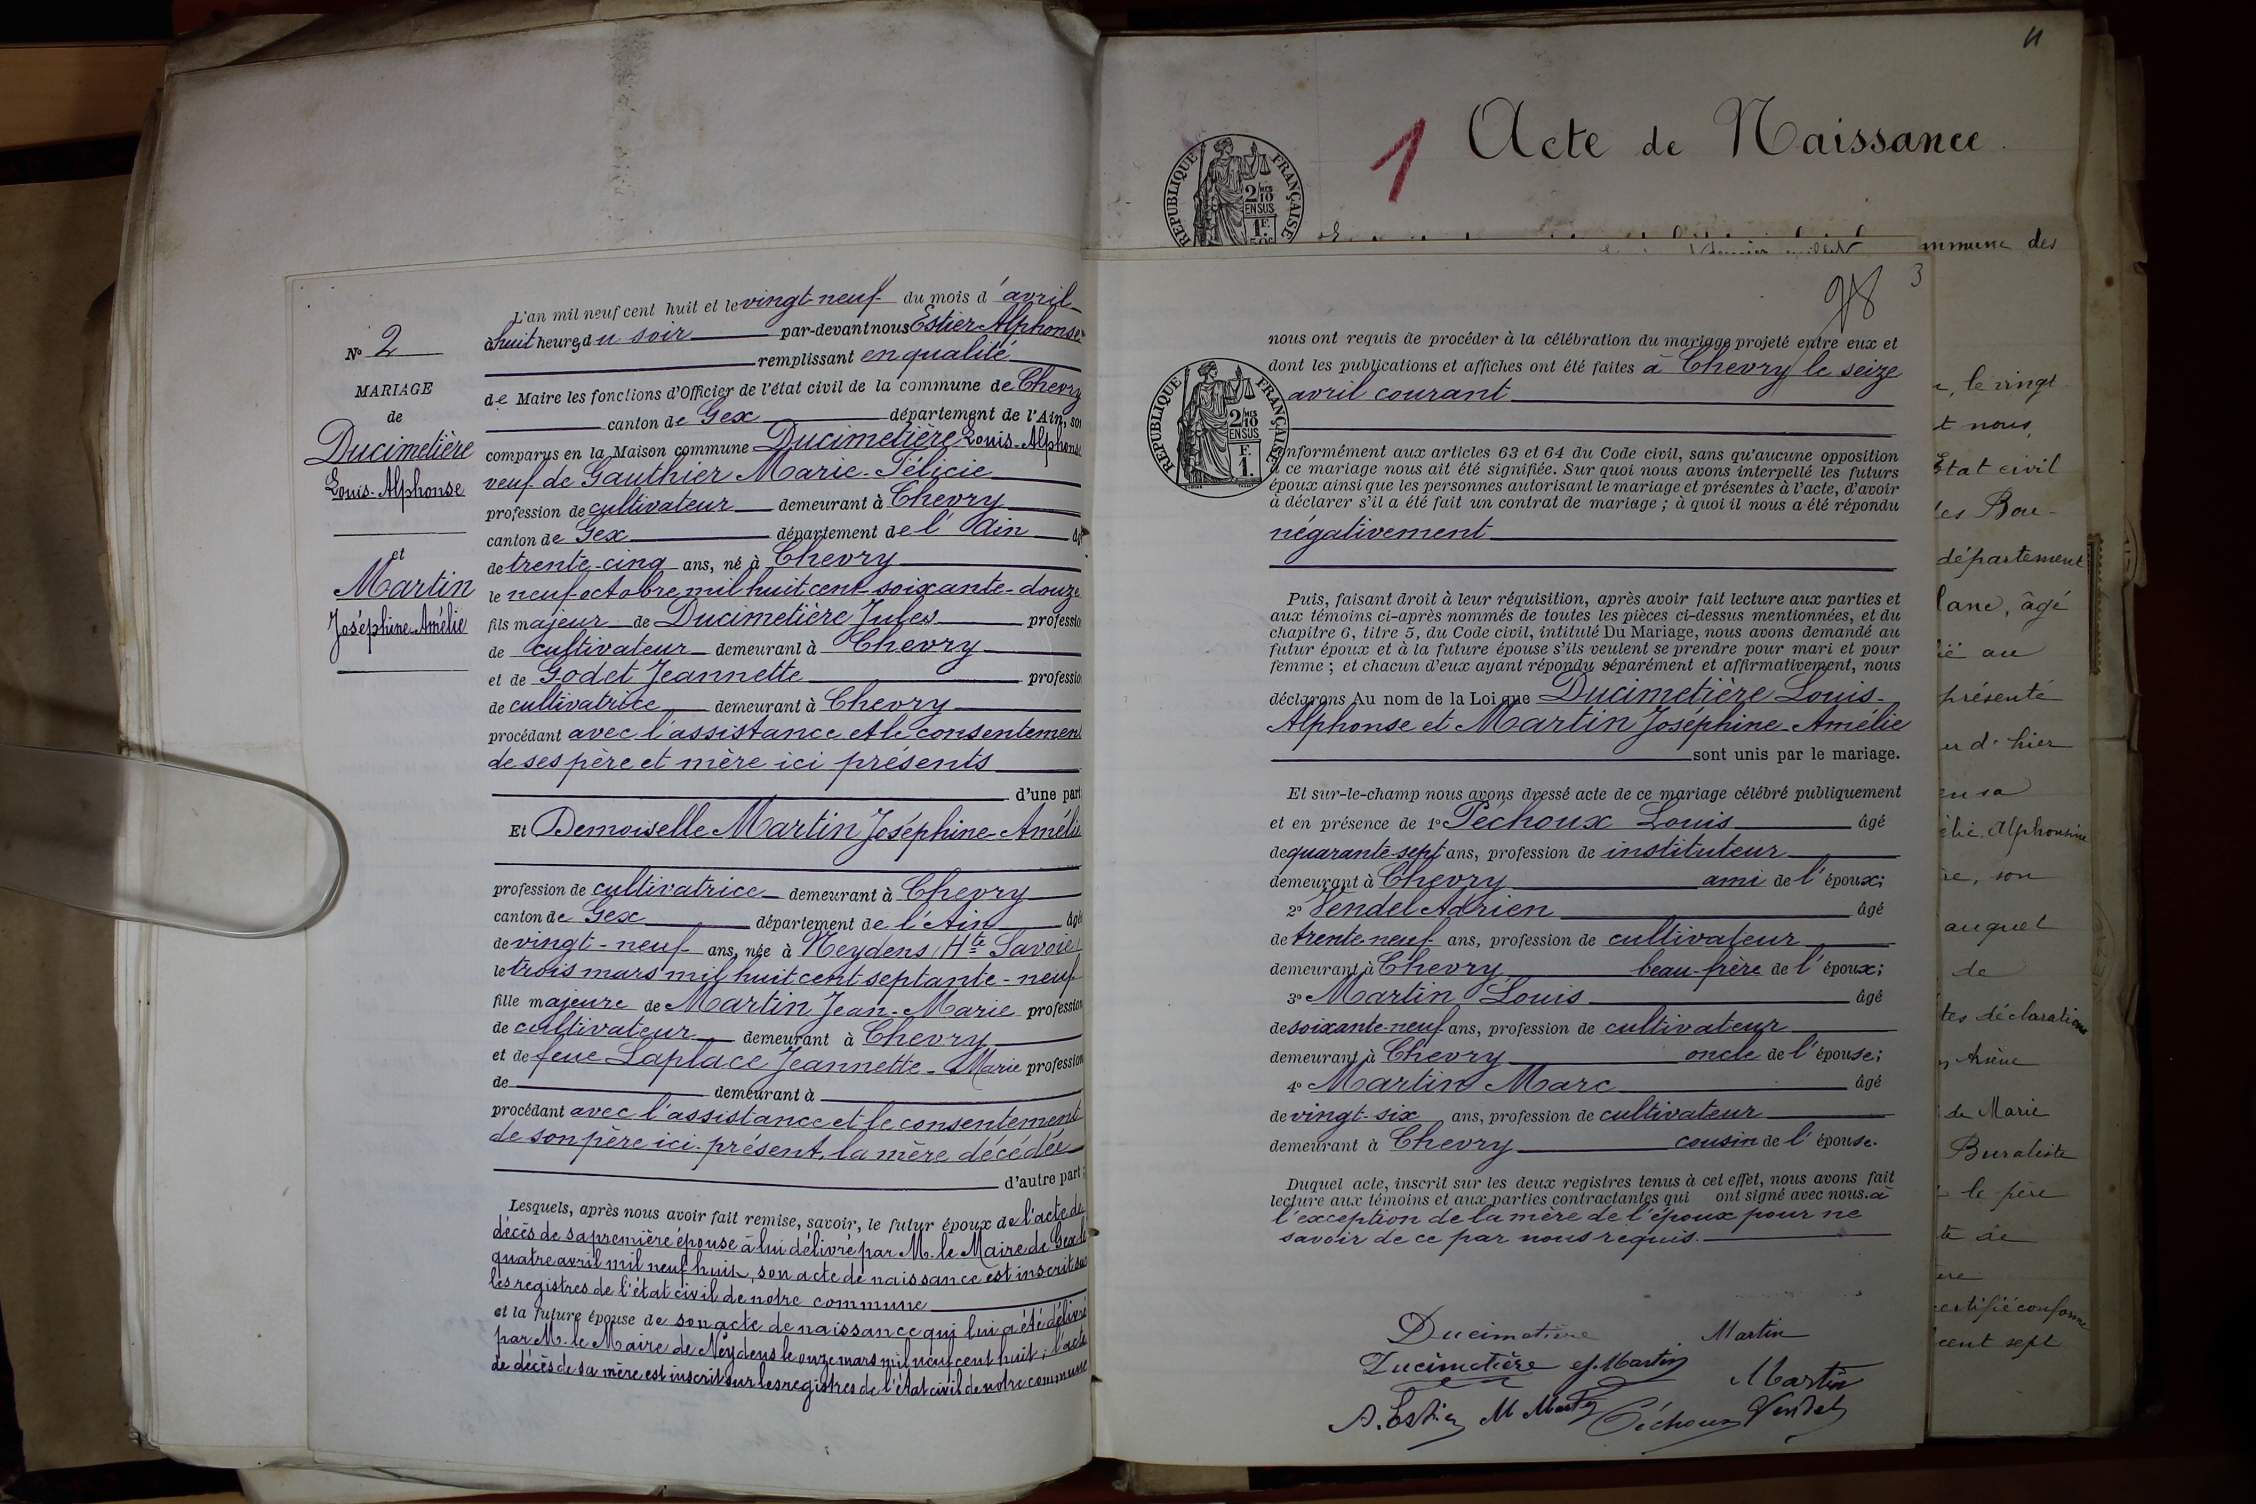 N° 2
MARIAGE
de
Ducimetière
Louis-Alphonse
et
Martin
Joséphine-Amélie
L'an mil neuf cent huit et le vingt-neuf du mois d'avril
à huit heures du soir par-devant nous Estier Alphonse
remplissant en qualité
de Maire les fonctions d'Officier de l'état civil de la commune de Chevry
canton de Gex département de l'Ain, son
comparus en la Maison commune Ducimetière Louis-Alphonse
veuf de Gauthier Marie-Félicie
profession de cultivateur demeurant à Chevry
canton de Gex département de l'Ain âgé
de trente-cinq ans, né à Chevry
le neuf octobre mil huit cent soixante-douze
fils majeur de Ducimetière Jules professio
de cultivateur demeurant à Chevry
et de Godet Jeannette professio
de cultivatrice demeurant à Chevry
procédant avec l'assistance et le consentement
de ses père et mère ici présents
d'une part
Et Demoiselle Martin Joséphine-Amélie
profession de cultivatrice demeurant à Chevry
canton de Gex département de l'Ain âgée
de vingt-neuf ans, née à Neydens (Hte Savoie)
le trois mars mil huit cent septante-neuf
fille majeure de Martin Jean-Marie profession
de cultivateur demeurant à Chevry
et de feue Laplace Jeannette-Marie profession
de demeurant à
procédant avec l'assistance et le consentement
de son père ici présent, la mère décédée
d'autre part ;
Lesquels, après nous avoir fait remise, savoir, le futur époux de l'acte de
décès de sa première épouse à lui délivré par M. le Maire de Gex le
quatre avril mil neuf huit, son acte de naissance est inscrit sur
les registres de l'état civil de notre commune
et la future épouse de son acte de naissance qui lui a été délivré
par M. le Maire de Neydens le onze mars mil neuf cent huit ; l'acte
de décès de sa mère est inscrit sur les registres de l'état civil de notre commune
11
1 Acte de Naissance
RÉPUBLIQUE FRANÇAISE
2/10 EN SUS
1F.
50c
mmune des
98
3
nous ont requis de procéder à la célébration du mariage projeté entre eux et
dont les publications et affiches ont été faites à Chevry le seize
avril courant
RÉPUBLIQUE FRANÇAISE
2/10 EN SUS
F. 1.
onformément aux articles 63 et 64 du Code civil, sans qu'aucune opposition
à ce mariage nous ait été signifiée. Sur quoi nous avons interpellé les futurs
époux ainsi que les personnes autorisant le mariage et présentes à l'acte, d'avoir
à déclarer s'il a été fait un contrat de mariage ; à quoi il nous a été répondu
négativement
Puis, faisant droit à leur réquisition, après avoir fait lecture aux parties et
aux témoins ci-après nommés de toutes les pièces ci-dessus mentionnées, et du
chapitre 6, titre 5, du Code civil, intitulé Du Mariage, nous avons demandé au
futur époux et à la future épouse s'ils veulent se prendre pour mari et pour
femme ; et chacun d'eux ayant répondu séparément et affirmativement, nous
déclarons Au nom de la Loi que Ducimetière Louis-
Alphonse et Martin Joséphine-Amélie
sont unis par le mariage.
Et sur-le-champ nous avons dressé acte de ce mariage célébré publiquement
et en présence de 1° Péchoux Louis âgé
de quarante-sept ans, profession de instituteur
demeurant à Chevry ami de l'époux;
2° Vendel Adrien âgé
de trente-neuf ans, profession de cultivateur
demeurant à Chevry beau-frère de l'époux;
3° Martin Louis âgé
de soixante-neuf ans, profession de cultivateur
demeurant à Chevry oncle de l'épouse;
4° Martin Marc âgé
de vingt-six ans, profession de cultivateur
demeurant à Chevry cousin de l'épouse.
Duquel acte, inscrit sur les deux registres tenus à cet effet, nous avons fait
lecture aux témoins et aux parties contractantes qui ont signé avec nous. à
l'exception de la mère de l'époux pour ne
savoir de ce par nous requis.
Ducimetière Martin
Ducimetière J. Martin Martin
A. Estier M Martin Péchoux Vendel
, le vingt
t nous,
Etat civil
les Bou-
département
lanc, âgé
ié au
présenté
ur d'hier
en sa
élie, Alphonsine
re, son
auquel
de
tes déclarations
Arsène
de Marie
Buraliste
le père
te de
ere
certifié conforme
cent sept